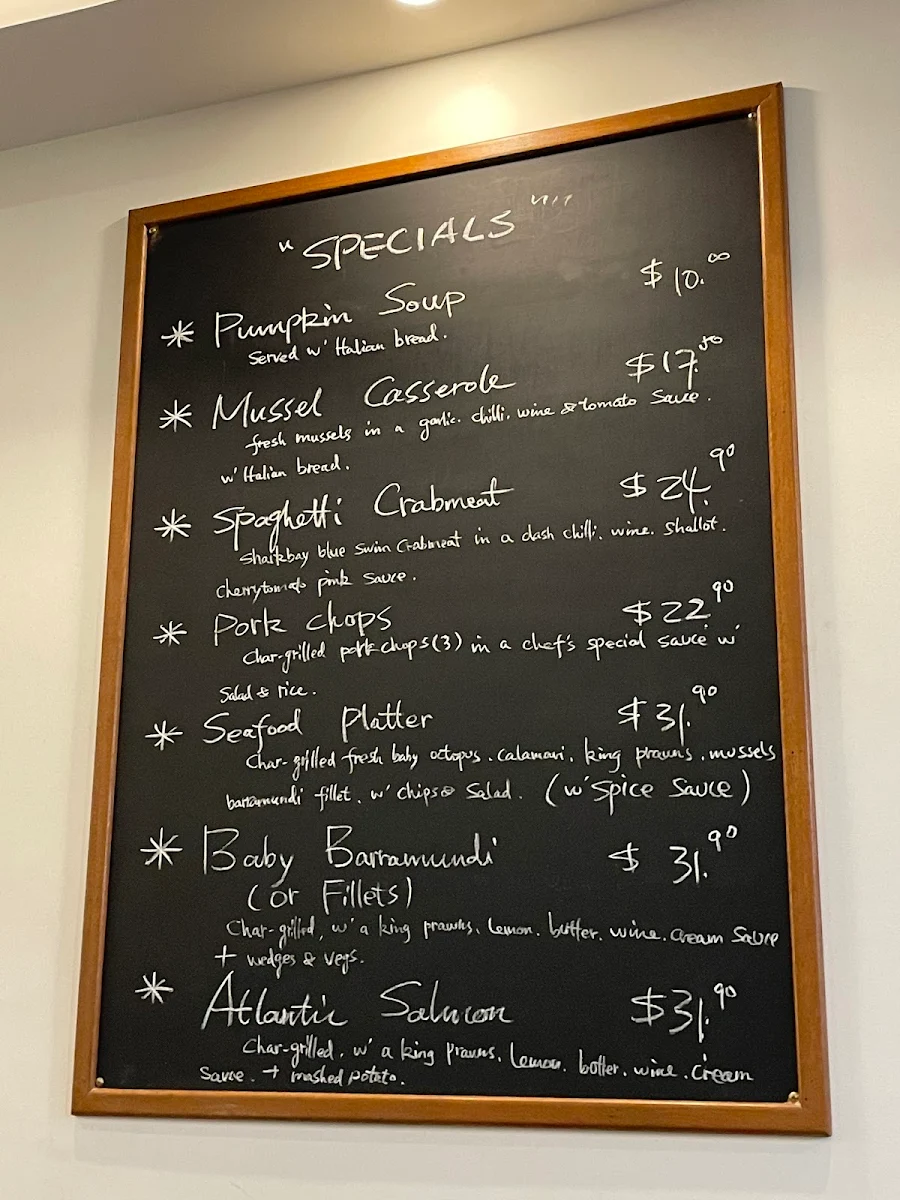 "SPECIALS"
* Pumpkin Soup $10.00
Served w' Italian bread.
* Mussel Casserole $17.50
fresh mussels in a garlic. chilli. wine & tomato sauce.
w' Italian bread.
* Spaghetti Crabmeat $24.90
Sharkbay blue Swim Crabmeat in a dash chilli. wine. shallot.
cherrytomato pink sauce.
* Pork chops $22.90
Char-grilled pork chops(3) in a chef's special sauce w'
Salad & rice.
* Seafood Platter $31.90
Char-grilled fresh baby octopus. calamari. king prawns. mussels
barramundi fillet. w' chips & Salad. (w' Spice Sauce)
* Baby Barramundi $31.90
(or Fillets)
Char-grilled, w' a king prawns. Lemon. butter. wine. cream Sauce
+ wedges & vegs.
* Atlantic Salmon $31.90
Char-grilled. w' a king prawns. Lemon. botter. wine. cream
Sauce. + mashed potato.